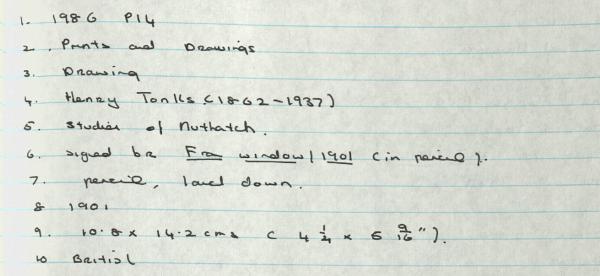 1. 1986 P14
2. Prints and Drawings
3. Drawing
4. Henry Tonks (1862-1937)
5. Studies of Nuthatch.
6. signed br window/1901 (in pencil).
7. pencil, laid down.
8 1901
9. 10.8 x 14.2 cms ( 4 1/4 x 5 9/16").
10 British